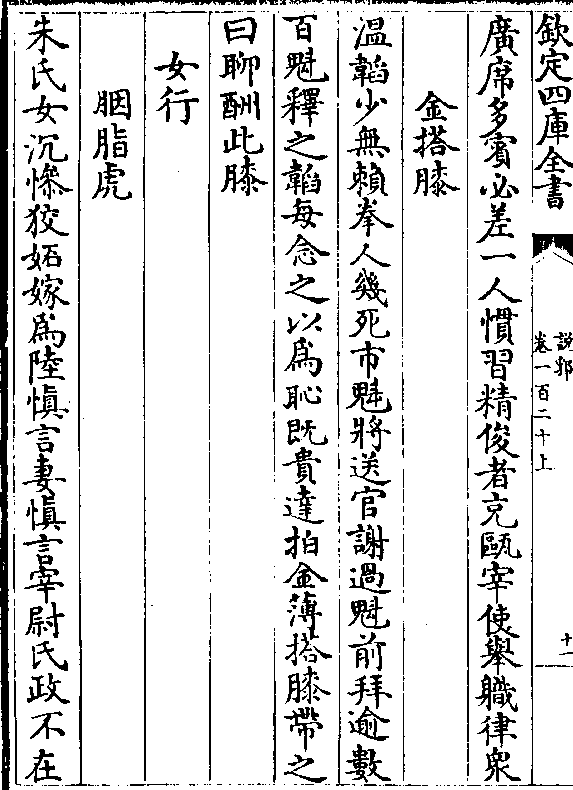 欽定四庫全書
說郛
卷一百二十上
十一
廣席多賓必差一人慣習精俊者充甌宰使舉職律衆
金搭膝
温韜少無賴拳人幾死市魁將送官謝過魁前拜逾數
百魁釋之韜每念之以爲恥既貴達拍金薄搭膝帶之
曰聊酬此膝
女行
胭脂虎
朱氏女沉慘狡妬嫁爲陸慎言妻慎言宰尉氏政不在